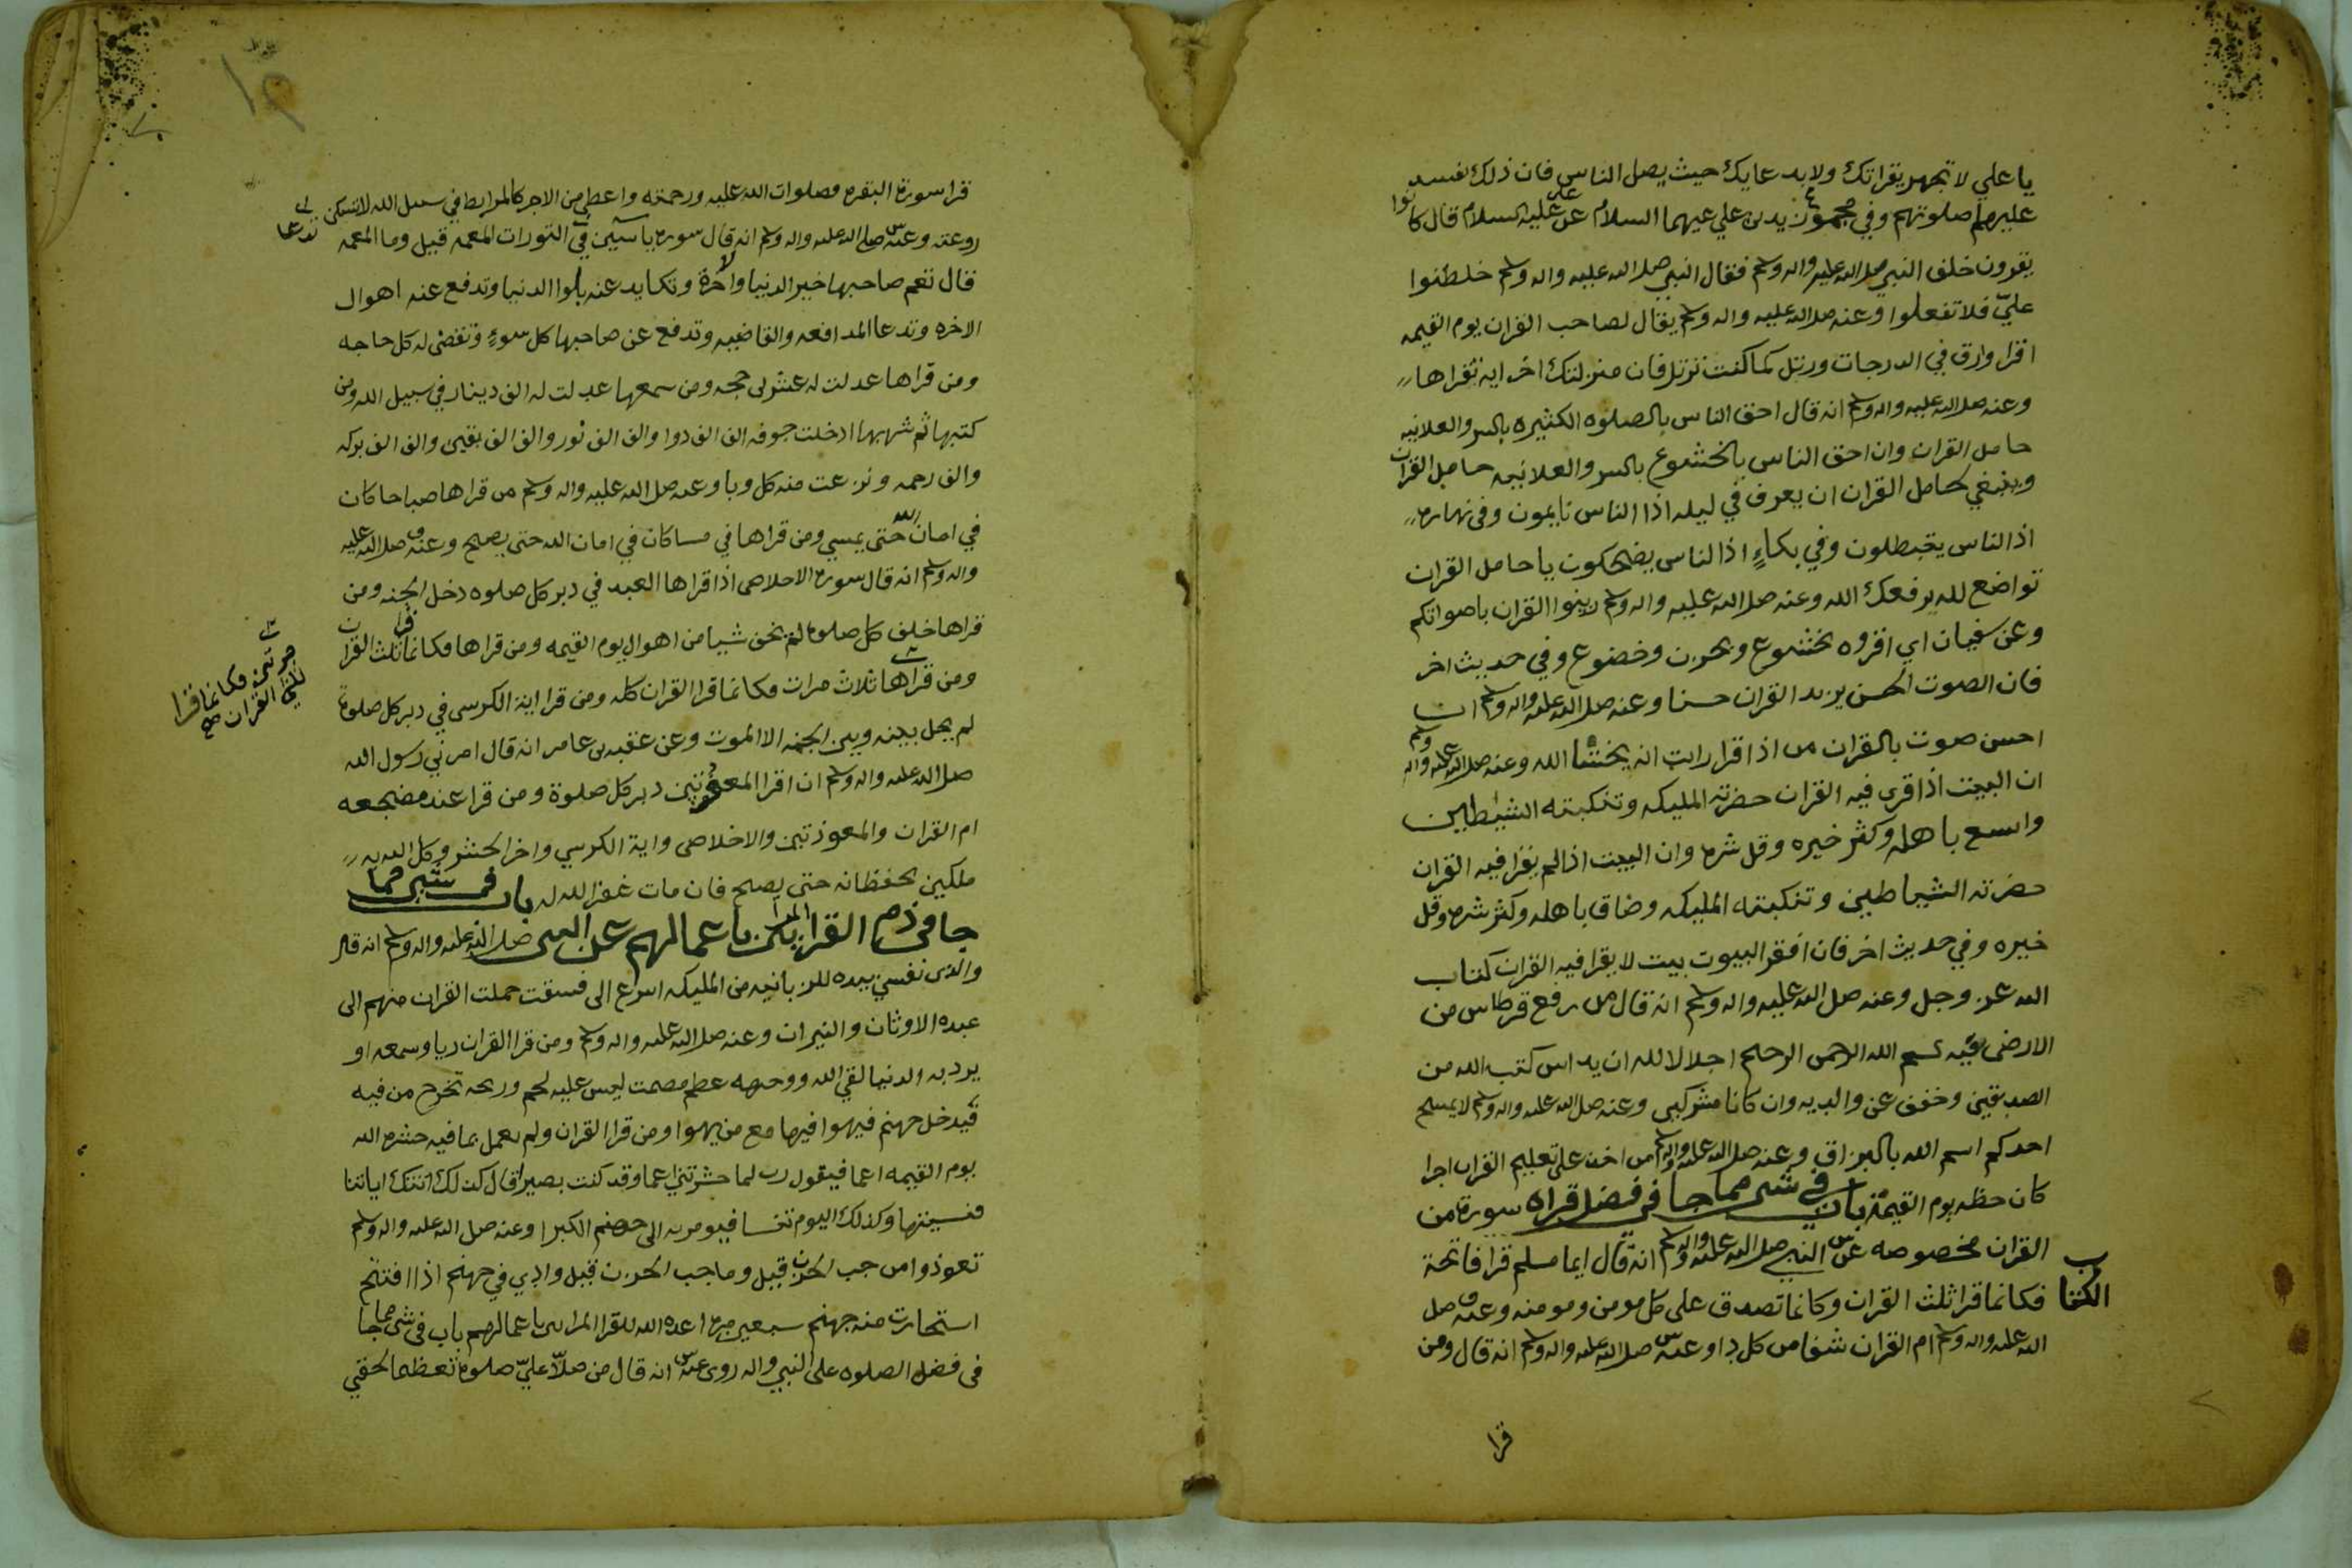 يا علي لا تجهر بقراتك ولا بدعايك حيث يصل الناس فان ذلك يفسد
عليهم صلوتهم وفي مجموع زيد بن علي عليهما السلام عن علي عليه السلام قال كانوا
يقرون خلف النبي صلى الله عليه واله وسلم فقال النبي صلى الله عليه واله وسلم خلطتوا
عليّ فلا تفعلوا وعنه صلى الله عليه واله وسلم يقال لصاحب القران يوم القيمه
اقرا وارق في الدرجات ورتل كما كنت ترتل فان منزلتك اخر ايه تقراها
وعنه صلى الله عليه واله وسلم انه قال احق الناس بالصلوه الكثيره بالسر والعلانيه
حامل القران وان احق الناس بالخشوع بالسر والعلانيه حامل القران
وينبغي لحامل القران ان يعرف في ليله اذا الناس نايمون وفي نهاره
اذ الناس يخبطلون وفي بكاءٍ اذا الناس يضحكون يا حامل القران
تواضع لله يرفعك الله وعنه صلى الله عليه واله وسلم زينوا القران باصواتكم
وعن سفيان اي اقروه بخشوع وبحزن وخضوع وفي حديث اخر
فان الصوت الحسن يزيد القران حسنا وعنه صلى الله عليه واله وسلم ان
احسن صوت بالقران من اذا قرا رايت انه يخشا الله وعنه صلى الله عليه واله وسلم
ان البيت اذا قرى فيه القران حضرته المليكه وتنكبته الشيطاين
واسع باهله وكثر خيره وقل شره وان البيت اذا لم يقرا فيه القران
حضرته الشياطين وتنكبته المليكه وضاق باهله وكثر شره وقل
خيره وفي حديث اخر فان افقر البيوت بيت لا يقرا فيه القران كتاب
الله عز وجل وعنه صلى الله عليه واله وسلم انه قال من رفع قرطاس من
الارض فيه بسم الله الرحمن الرحيم اجلالا لله ان يداس كتب الله من
الصديقين وخفف عن والديه وان كانا مشركين وعنه صلى الله عليه واله وسلم لا يمسح
احدكم اسم الله بالبزاق وعنه صلى الله عليه واله وسلم من اخذ على تعليم القران اجرا
كان حظه يوم القيمة باب في شى مما جا في فضل قراه سورة من
القران مخصوصه عن النبي صلى الله عليه واله وسلم انه قال ايما مسلم قرا فاتحة
الكتاب فكانما قرا ثلث القران وكانما تصدق على كل مومن ومومنه وعنه صلى
الله عليه واله وسلم ام القران شفا من كل دا وعنه صلى الله عليه واله وسلم انه قال ومن
قرا
١٩
قرا سورة البقره فصلوات الله عليه ورحمته واعطي من الاجر كالمرابط في سبيل الله لا تسكن
روعته وعنه صلى الله عليه واله وسلم انه قال سوره ياسين في التورات تدعا المعمه قيل وما المعمه
قال تعم صاحبها خير الدنيا والاخرة وتكابد عنه بلوا الدنيا وتدفع عنه اهوال
الاخره وتدعا المدافعه والقاضيه وتدفع عن صاحبها كل سوءٍ وتقضى له كل حاجه
ومن قراها عدلت له عشرين حجه ومن سمعها عدلت له الف دينار في سبيل الله ومن
كتبها ثم شربها ادخلت جوفه الف الف دوا والف الف نور والف الف يقين والف الف بركه
والف رحمه ونزعت منه كل وبا وعنه صلى الله عليه واله وسلم من قراها صباحا كان
في امان الله حتى يمسي ومن قراها في مسا كان في امان الله حتى يصبح وعنه صلى الله عليه
واله وسلم انه قال سوره الاخلاص اذا قراها العبد في دبر كل صلوه دخل الجنه ومن
قراها خلف كل صلوه لم يخف شيا من اهوال يوم القيمه ومن قراها فكانما قرا ثلث القران
مرتين فكانما قرا
ثلثي القران صح
ومن قراها ثلاث مرات فكانما قرا القران كله ومن قرا اية الكرسي في دبر كل صلوة
لم يحل بينه وبين الجنه الا الموت وعن عقبه بن عامر انه قال امرني رسول الله
صلى الله عليه واله وسلم ان اقرا المعوذتين دبر كل صلوة ومن قرا عند مضجعه
ام القران والمعوذتين والاخلاص واية الكرسي واخر الحشر وكل الله به
ملكين يحفظانه حتى يصبح فان مات غفر الله له باب في شى مما
جا في ذم القرا المراين باعمالهم عن النبي صلى الله عليه واله وسلم انه قال
والذى نفسي بيده للزبانيه من المليكه اسرع الى فسقت حملت القران منهم الى
عبده الاوثان والنيران وعنه صلى الله عليه واله وسلم ومن قرا القران ريا وسمعه او
يرد به الدنيا لقي الله ووجهه عظم مصمت ليس عليه لحم وريحه تخرج من فيه
فيدخل جهنم فيهوا فيها مع من يهوا ومن قرا القران ولم يعمل بما فيه حشره الله
يوم القيمه اعما فيقول رب لما حشرتني اعما وقد كنت بصيرا قال كذلك اتتك اياتنا
فنسيتها وكذلك اليوم تنسا فيومر به الى جهنم الكبرا وعنه صلى الله عليه واله وسلم
تعوذوا من جب الحزن قيل وما جب الحزن قيل وادي في جهنم اذا افتتح
استجارت منه جهنم سبعين مره اعده الله للقرا المراين باعمالهم باب في شى مما جا
في فضل الصلوه على النبي واله روى عنه انه قال من صلّا عليّ صلوة تعظيما لحقي